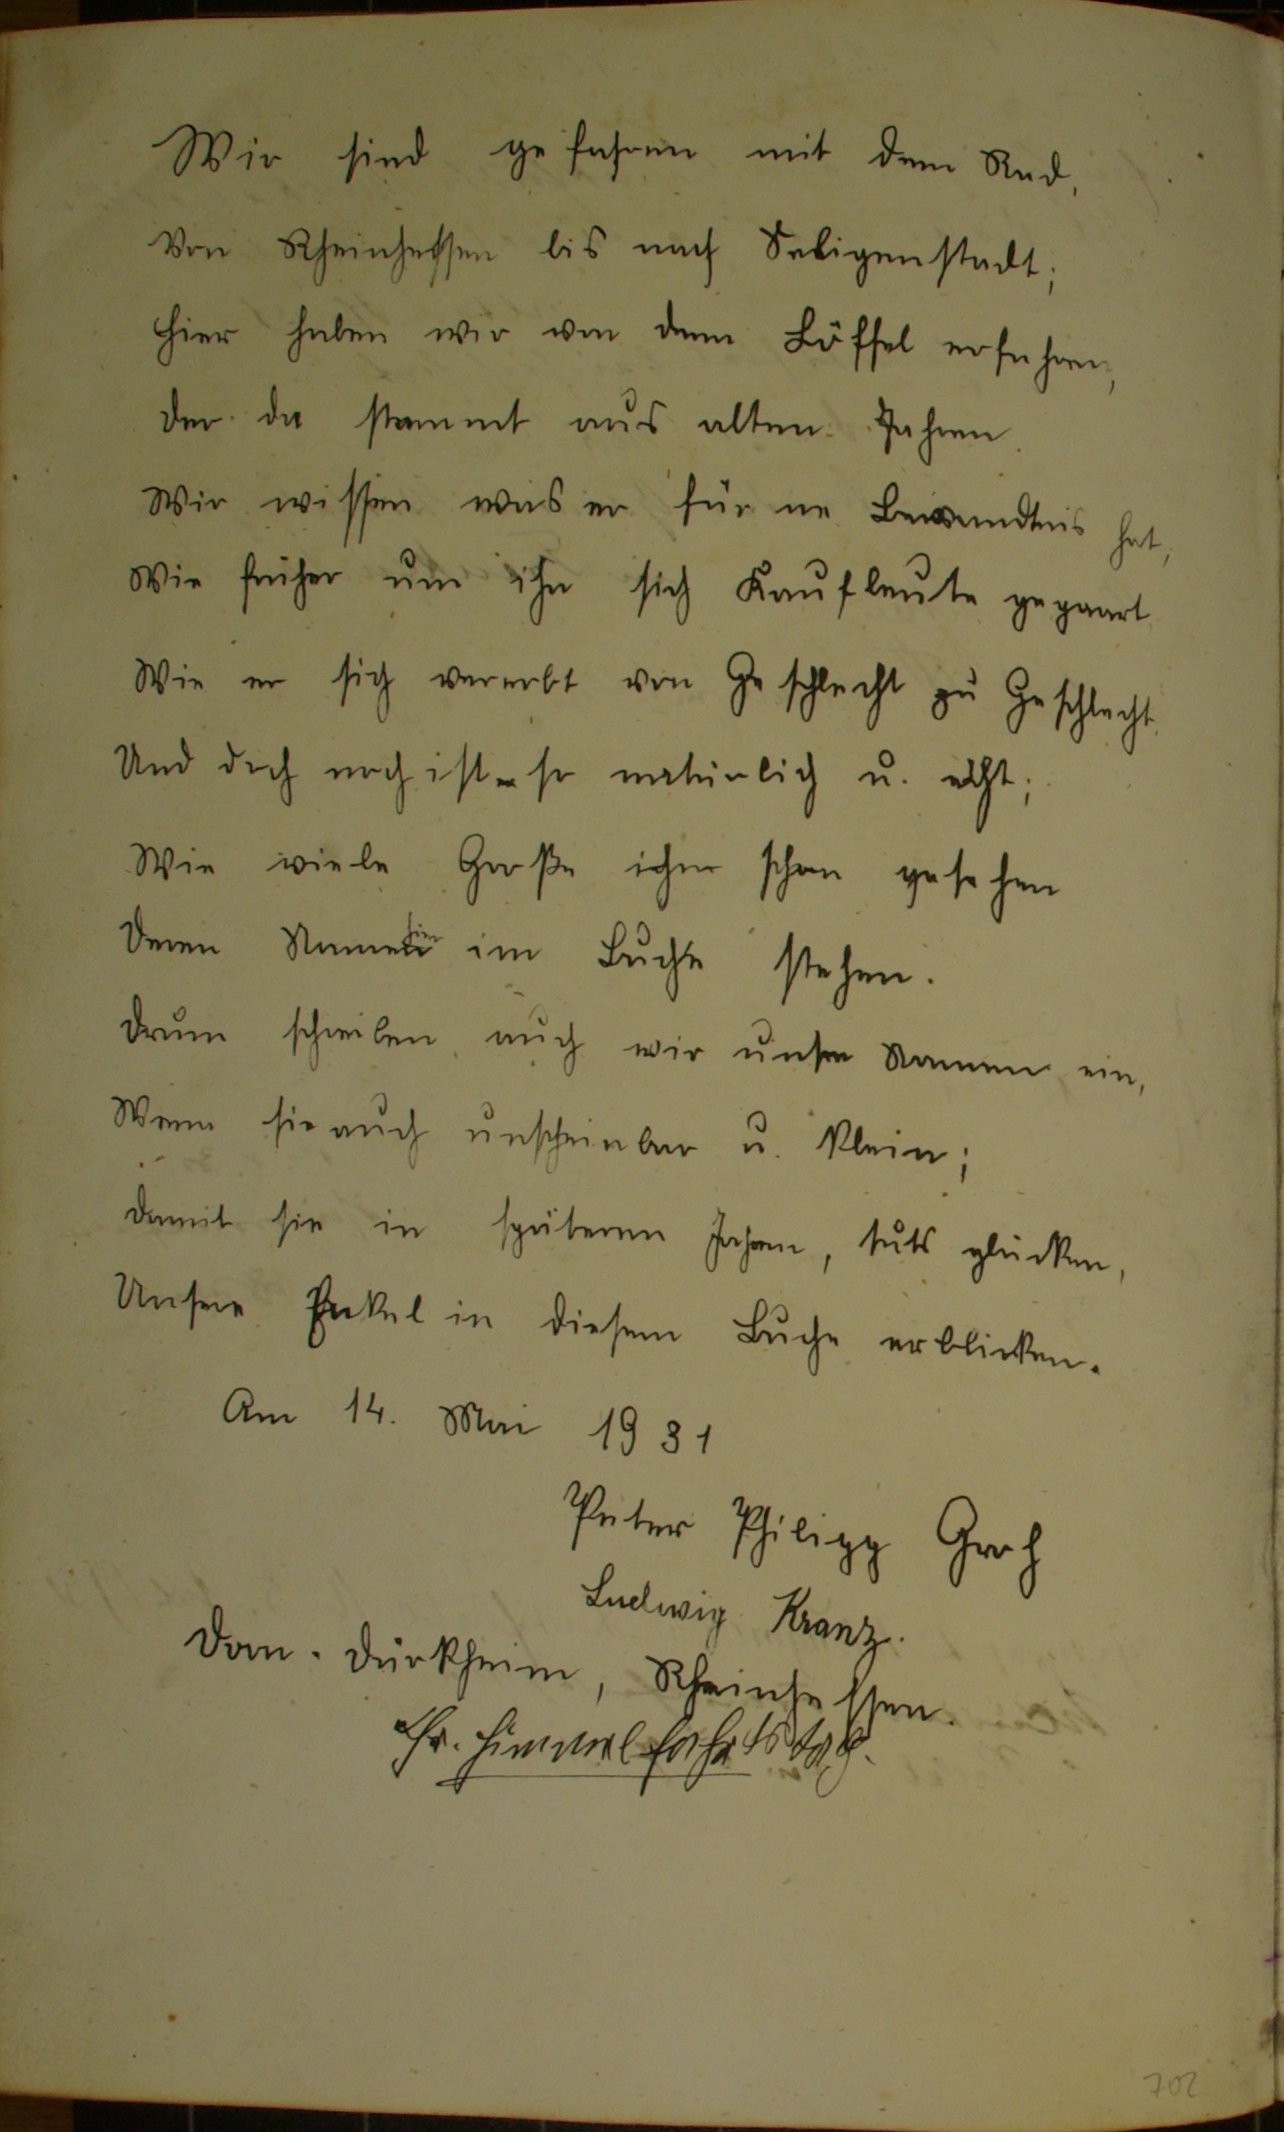 Wir sind gefahren mit dem Rad,
Von Rheinhessen bis nach Seligenstadt;
Hier haben wir von dem Löffel erfahren,
Der da stammt aus alten Jahren.
Wir wissen was er für ne Bewandtnis hat,
Wie früher um ihn sich Kaufleute gepaart
Wie er sich vererbt von Geschlecht zu Geschlecht.
Und doch noch ist so natürlich u. echt;
Wie viele Große ihn schon gesehen
Deren Namen hier im Buche stehen.
Drum schreiben auch wir unsre Namen ein,
Wenn sie auch unscheinbar u. klein;
Damit sie in späteren Jahren, tuts glücken,
Unsere Enkel in diesem Buche erblicken.
Am 14. Mai 1931
Peter Philipp Groh
Ludwig Kranz.
Dorn-Dürkheim, Rheinhessen.
Chr. Himmelfahrtstag.
702